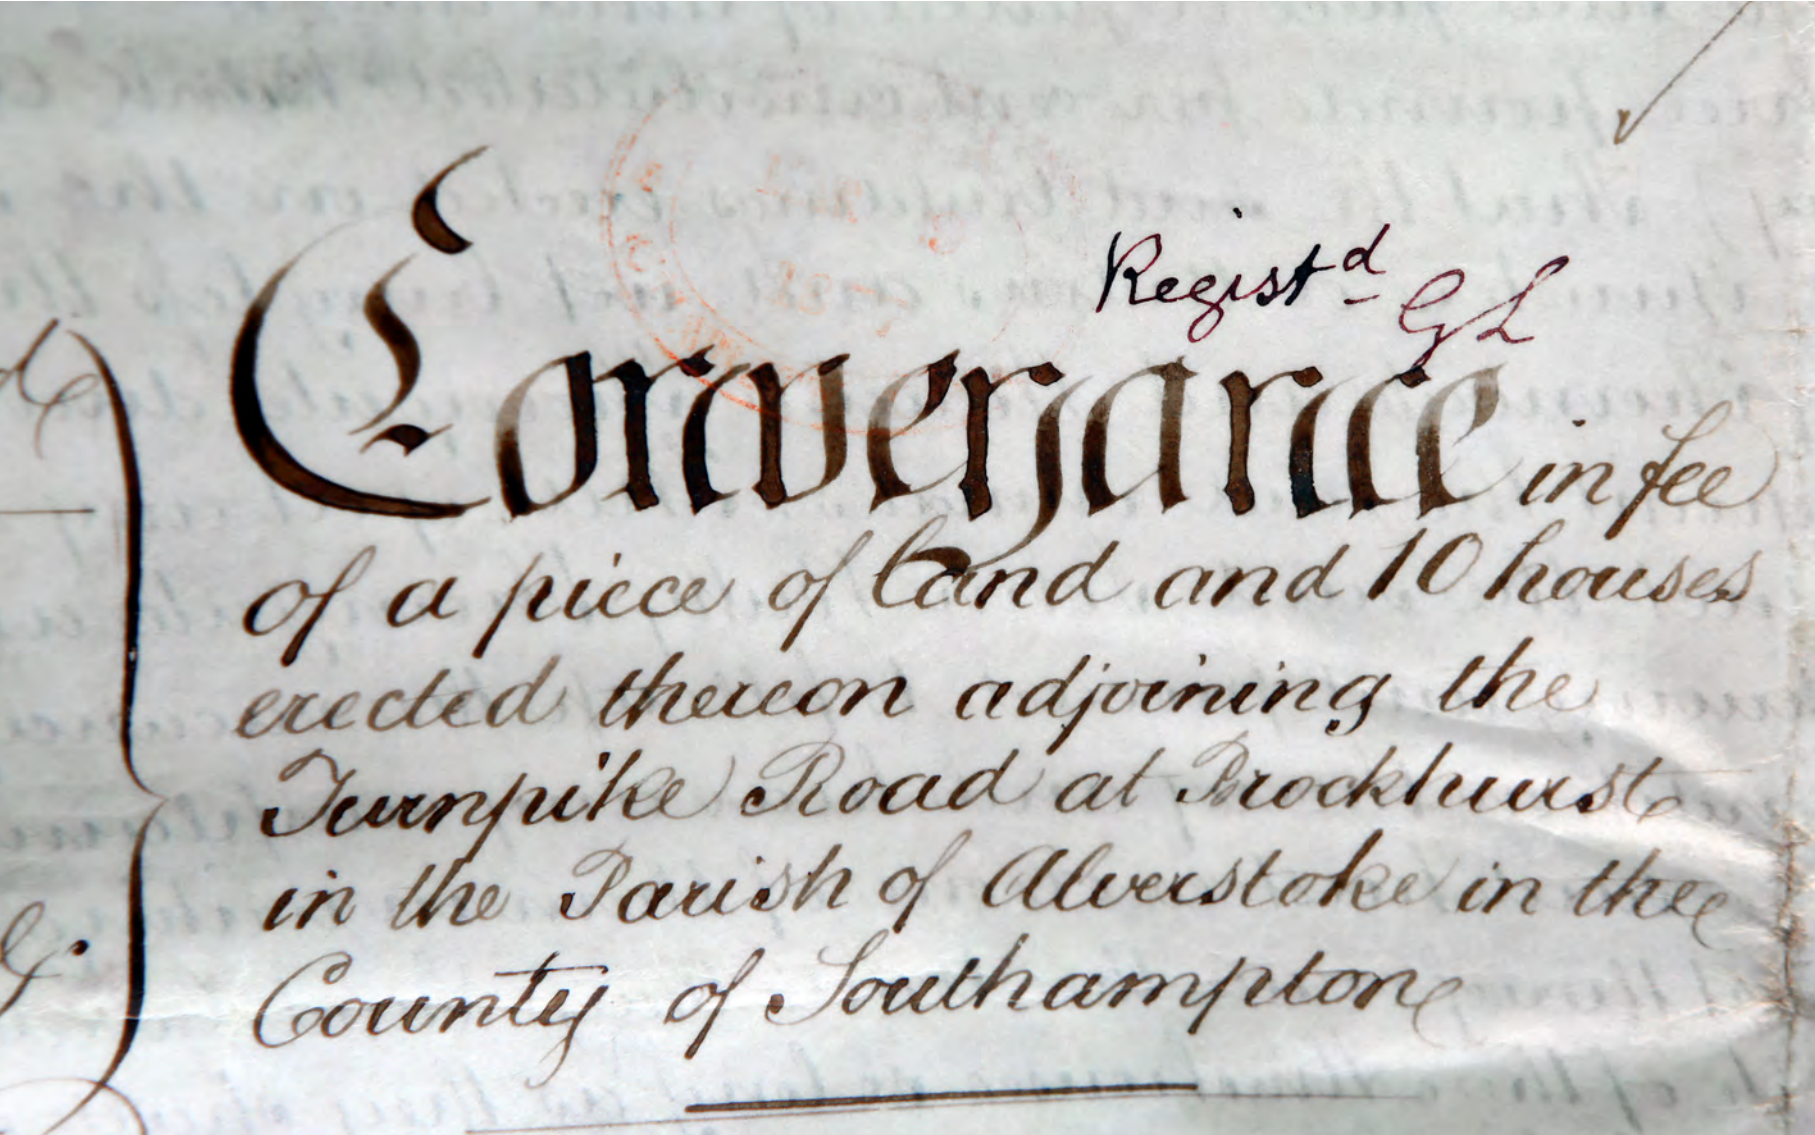 Registd GL
Conveyance in fee
of a piece of land and 10 houses
erected thereon adjoining the
Turnpike Road at Brockhurst
in the Parish of Alverstoke in the
County of Southampton